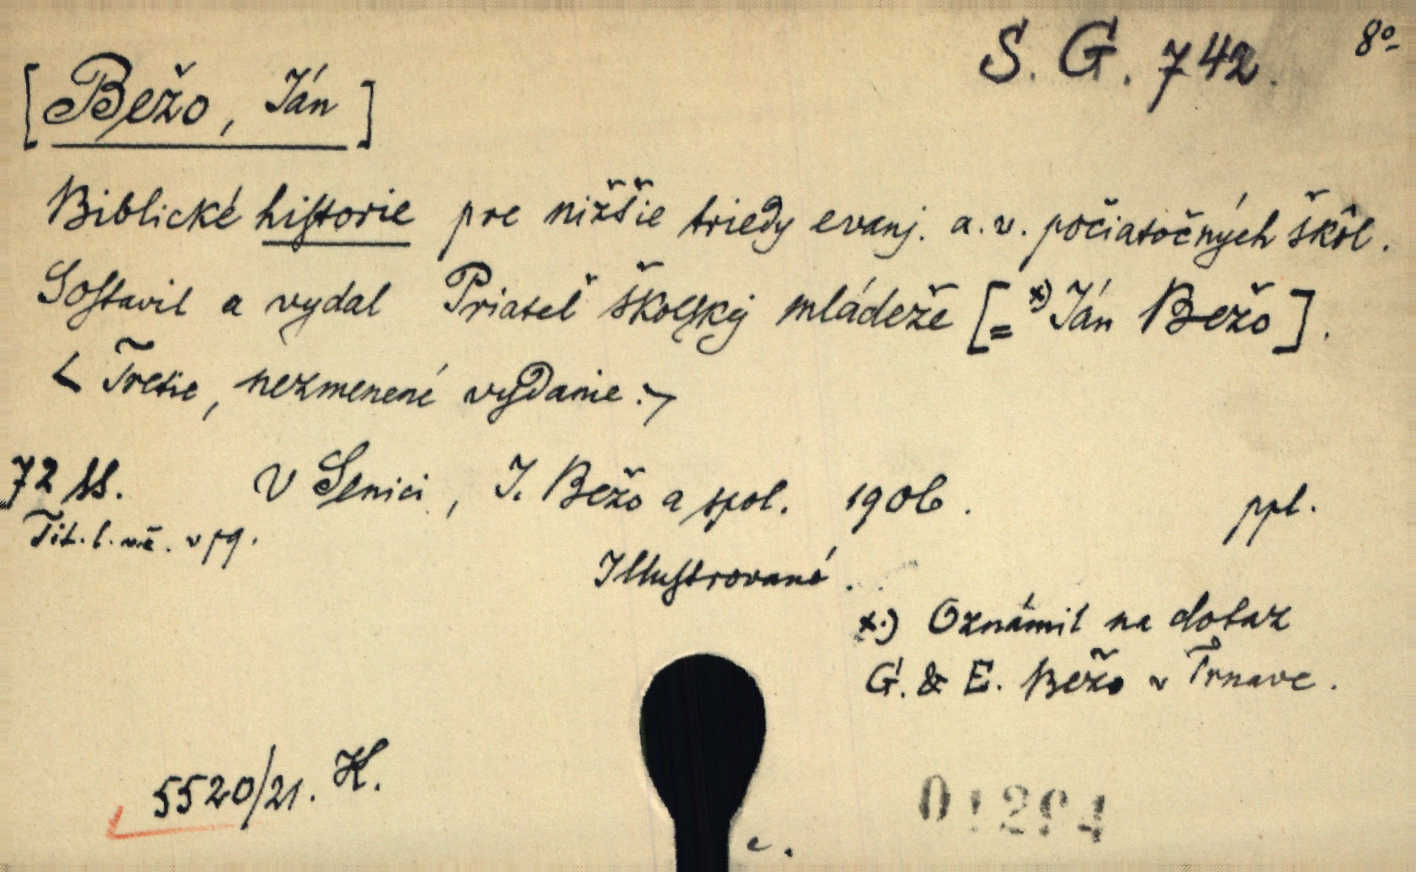 S. G. 742. 8°
[Bežo, Ján]
Biblické historie pre nižšie triedy evanj. a. v. počiatočných škôl.
Sostavil a vydal Priateľ školskej mládeže [= x) Ján Bežo].
< Tretie, nezmenené vydanie. >
72 ss. V Senici, J. Bežo a spol. 1906. ppl.
Tit. l. vč. v pg.
Illustrované.
x.) Oznámil na dotaz
G. & E. Bežo v Trnave.
5520/21. K.
01294
c.